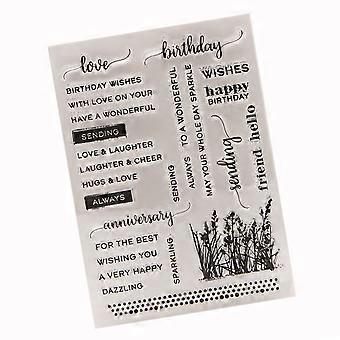 love
birthday
BIRTHDAY WISHES
WITH LOVE ON YOUR
HAVE A WONDERFUL
SENDING
LOVE & LAUGHTER
LAUGHTER & CHEER
HUGS & LOVE
ALWAYS
anniversary
FOR THE BEST
WISHING YOU
A VERY HAPPY
DAZZLING
SENDING
SPARKLING
ALWAYS
TO A WONDERFUL
MAY YOUR WHOLE DAY SPARKLE
WISHES
happy
BIRTHDAY
sending
friend
hello